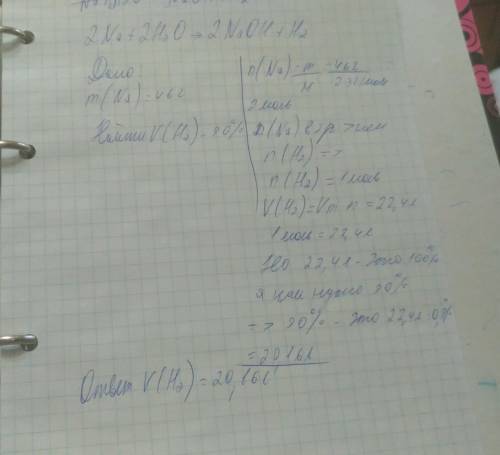 2Na + 2H₂O → 2NaOH + H₂
Дано:
m(Na) = 46г
Найти V(H₂) - 90%
n(Na) = m/M = 46г
2моль
n(H₂) =>
n(H₂) = 1моль
V(H₂) = Vm · n = 22,4л
1моль = 22,4л
22,4л - это 100%
а нам нужно 90%
=> 90% - это 22,4л · 0,9
= 20,16л
Ответ V(H₂) = 20,16л